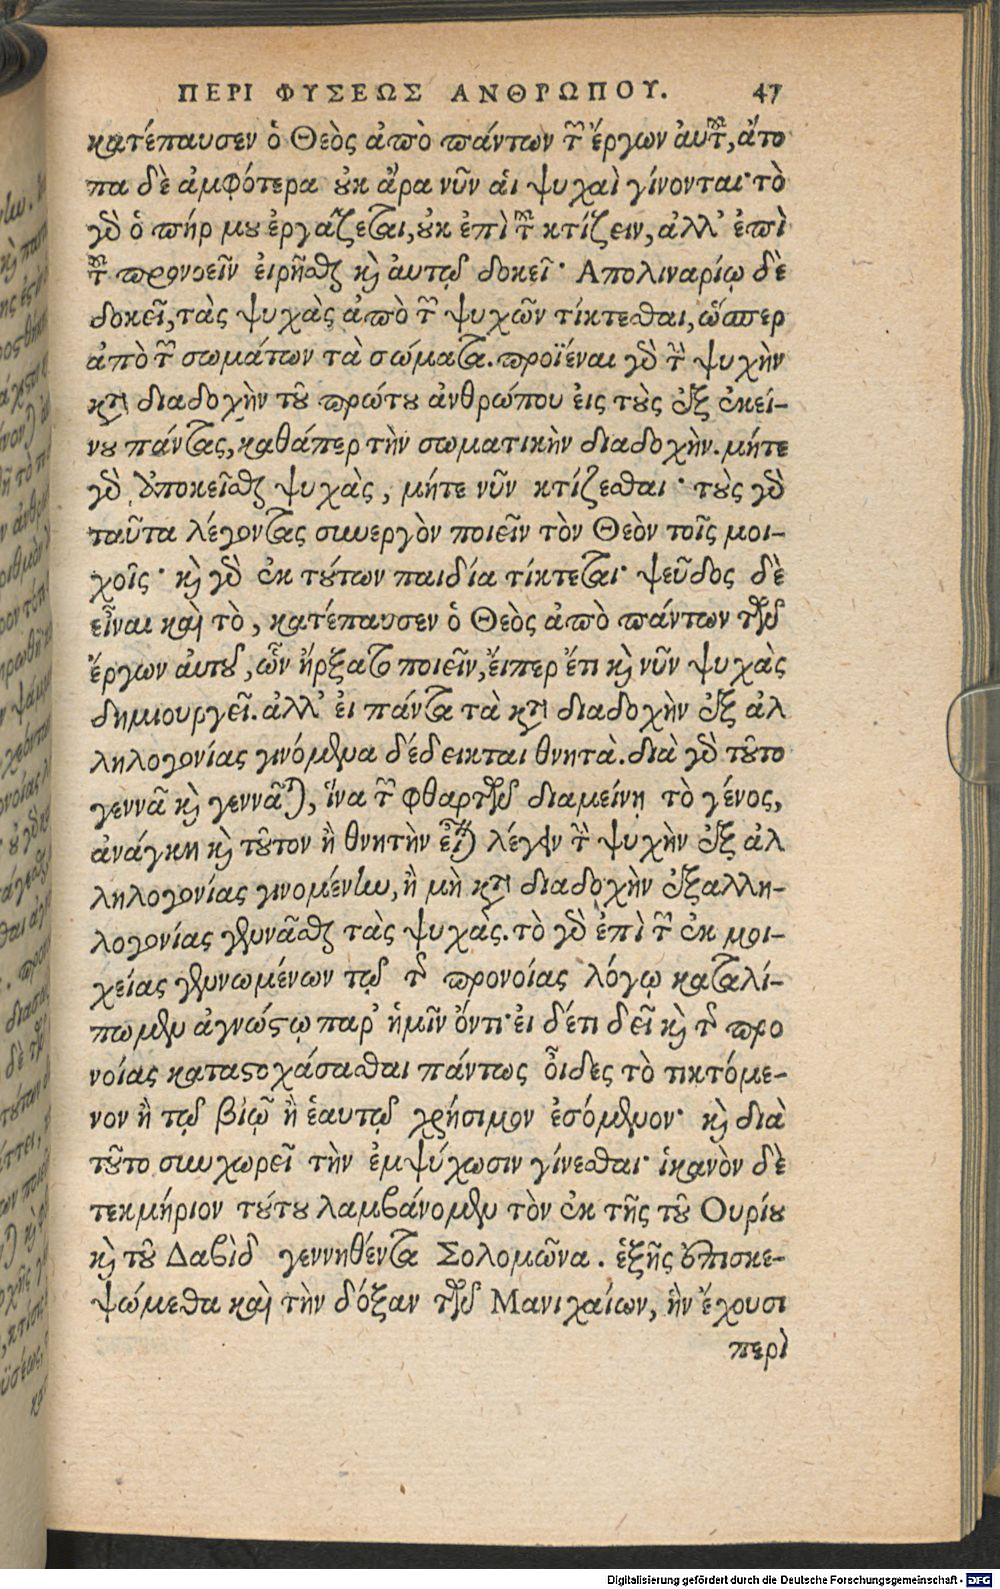 ΠΕΡΙ ΦΥΣΕΩΣ ΑΝΘΡΩΠΟΥ. 47
κατέπαυσεν ὁ Θεὸς ἀπὸ πάντων τῶν ἔργων ἀυτῶν, ἄτο
πα δὲ ἀμφότερα οὐκ ἄρα νῦν ἁι ψυχαὶ γίνονται· τὸ
γὸ ὁ πήρ μου ἐργάζεται, οὐκ ἐπὶ τῶν κτίζειν, ἀλλ' ἐπὶ
τῶν προνοεῖν ἐιρῆσθαι καὶ ἀυτῷ δοκεῖ· Απολιναρίῳ δὲ
δοκεῖ, τὰς ψυχὰς ἀπὸ τῶν ψυχῶν τίκτεσθαι, ὥσπερ
ἀπὸ τῶν σωμάτων τὰ σώματα. προϊέναι γὸ τὴν ψυχὴν
κατὰ διαδοχὴν τοῦ πρώτου ἀνθρώπου ἐις τοὺς ἐξ ἐκεί-
νου πάντας, καθάπερ τὴν σωματικὴν διαδοχὴν. μήτε
γὸ ὑποκεῖσθαι ψυχὰς, μήτε νῦν κτίζεσθαι· τοὺς γὸ
ταῦτα λέγοντας συνεργὸν ποιεῖν τὸν Θεὸν τοῖς μοι-
χοῖς· καὶ γὸ ἐκ τούτων παιδία τίκτεται· ψεῦδος δὲ
εἶναι καὶ τὸ, κατέπαυσεν ὁ Θεὸς ἀπὸ πάντων τῶν
ἔργων ἀυτοῦ, ὧν ἤρξατο ποιεῖν, ἔιπερ ἔτι καὶ νῦν ψυχὰς
δημιουργεῖ. ἀλλ' ἐι πάντα τὰ κατὰ διαδοχὴν ἐξ ἀλ
ληλογονίας γινόμενα δέδεικται θνητὰ. διὰ γὸ τοῦτο
γεννᾶ καὶ γεννᾶται, ἵνα τῶν φθαρτῶν διαμείνῃ τὸ γένος,
ἀνάγκη καὶ τοῦτον ἢ θνητὴν εἶναι λέγειν τὴν ψυχὴν ἐξ ἀλ
ληλογονίας γινομένην, ἢ μὴ κατὰ διαδοχὴν ἐξαλλη-
λογονίας γεννᾶσθαι τὰς ψυχὰς. τὸ γὸ ἐπὶ τῶν ἐκ μοι-
χείας γεννωμένων τῷ τῆς προνοίας λόγῳ καταλί-
πωμεν ἀγνώστῳ παρ' ἡμῖν ὄντι· ἐι δ' έτι δεῖ καὶ τῆς προ
νοίας καταστοχάσασθαι πάντως ὅιδες τὸ τικτόμε-
νον ἢ τῷ βίῳ ἢ ἑαυτῷ χρήσιμον ἐσόμενον· καὶ διὰ
τοῦτο συγχωρεῖ τὴν ἐμψύχωσιν γίνεσθαι· ἱκανὸν δὲ
τεκμήριον τούτου λαμβάνομεν τὸν ἐκ τῆς τοῦ Ουρίου
καὶ τοῦ Δαβὶδ γεννηθέντα Σολομῶνα. ἑξῆς ἐπισκε-
ψώμεθα καὶ τὴν δόξαν τῶν Μανιχαίων, ἣν ἔχουσι
περὶ
Digitalisierung gefördert durch die Deutsche Forschungsgemeinschaft - DFG